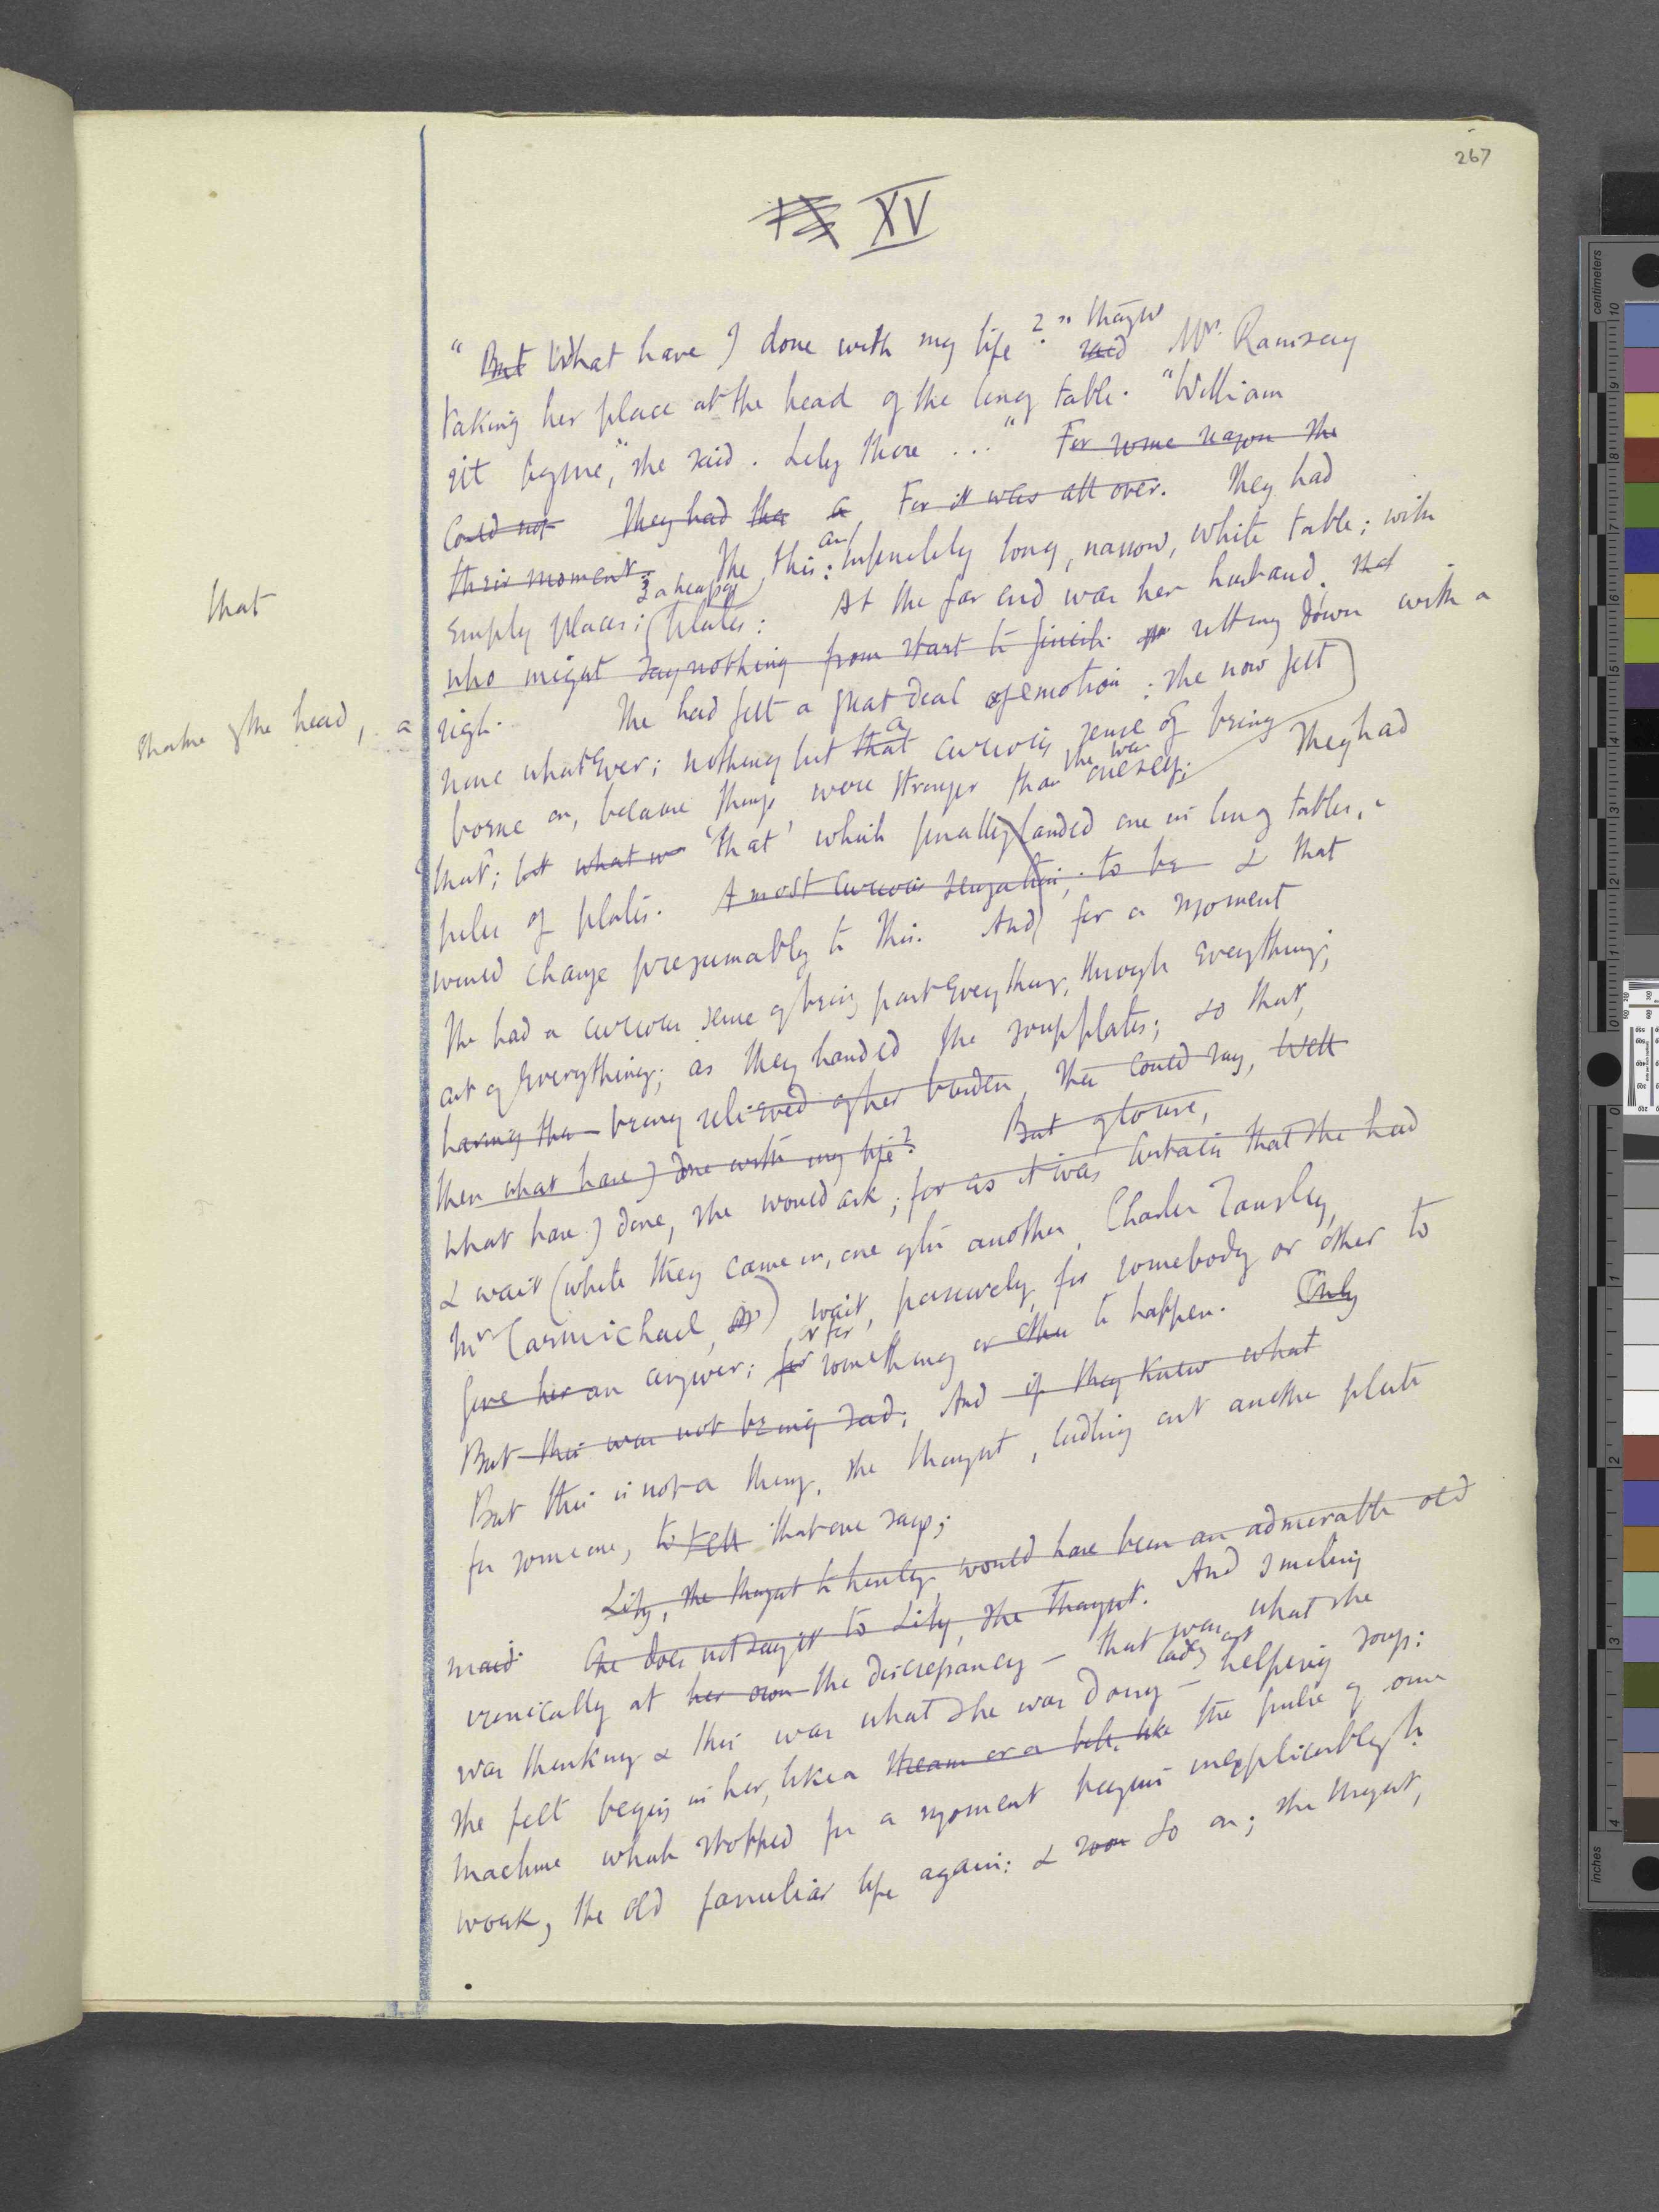 267
XV
"But What have I done with my life?" thought
said Mrs. Ramsay
taking her place at the head of the long table. "William
sit by me," she said. Lily there ..." For some reason she
could not They had the a For it was all over. They had
their moment. The, this: an infinitely long, narrow, white table; with
empty places; & a heap of plates: At the far end was her husband.
that
who might say nothing from start to finish. sitting down with a
shake of the head, a
sigh. She had felt a great deal of emotion; she now felt
none whatever; nothing but that a curious sense of being
borne on, because things were stronger than she was oneself; They had
that; but what was 'that' which finally landed one in long tables,
piles of plates. A most curious sensation; to be & that
would change presumably to this. And for a moment
she had a curious sense of being past everything, through everything;
out of everything; as they handed the soup plates; so that,
having the being relieved of her burden, she could say, Well
then what have I done with my life? But of course,
what have I done, she would ask; for as it was certain that she had
& wait (while they came in, one after another, Charles Tansley,
Mr Carmichael,) wait, passively, for somebody or other to
give her an answer; for or for something or other to happen. Only
But this was not being said; And if they knew what
But this is not a thing, she thought, ladling out another plate
for someone, to tell that one says;
Lily, she thought to herself, would have been an admirable old
maid. One does not say it to Lily, she thought. And smiling
ironically at her own the discrepancy – that was what she
was thinking & this was what she was doing – ladling out helping soup:
she felt begin in her, like a stream or a bell, like the pulse of some
machine which stopped for a moment begins inexplicably to
work, the old familiar life again: & soon so on; she thought,